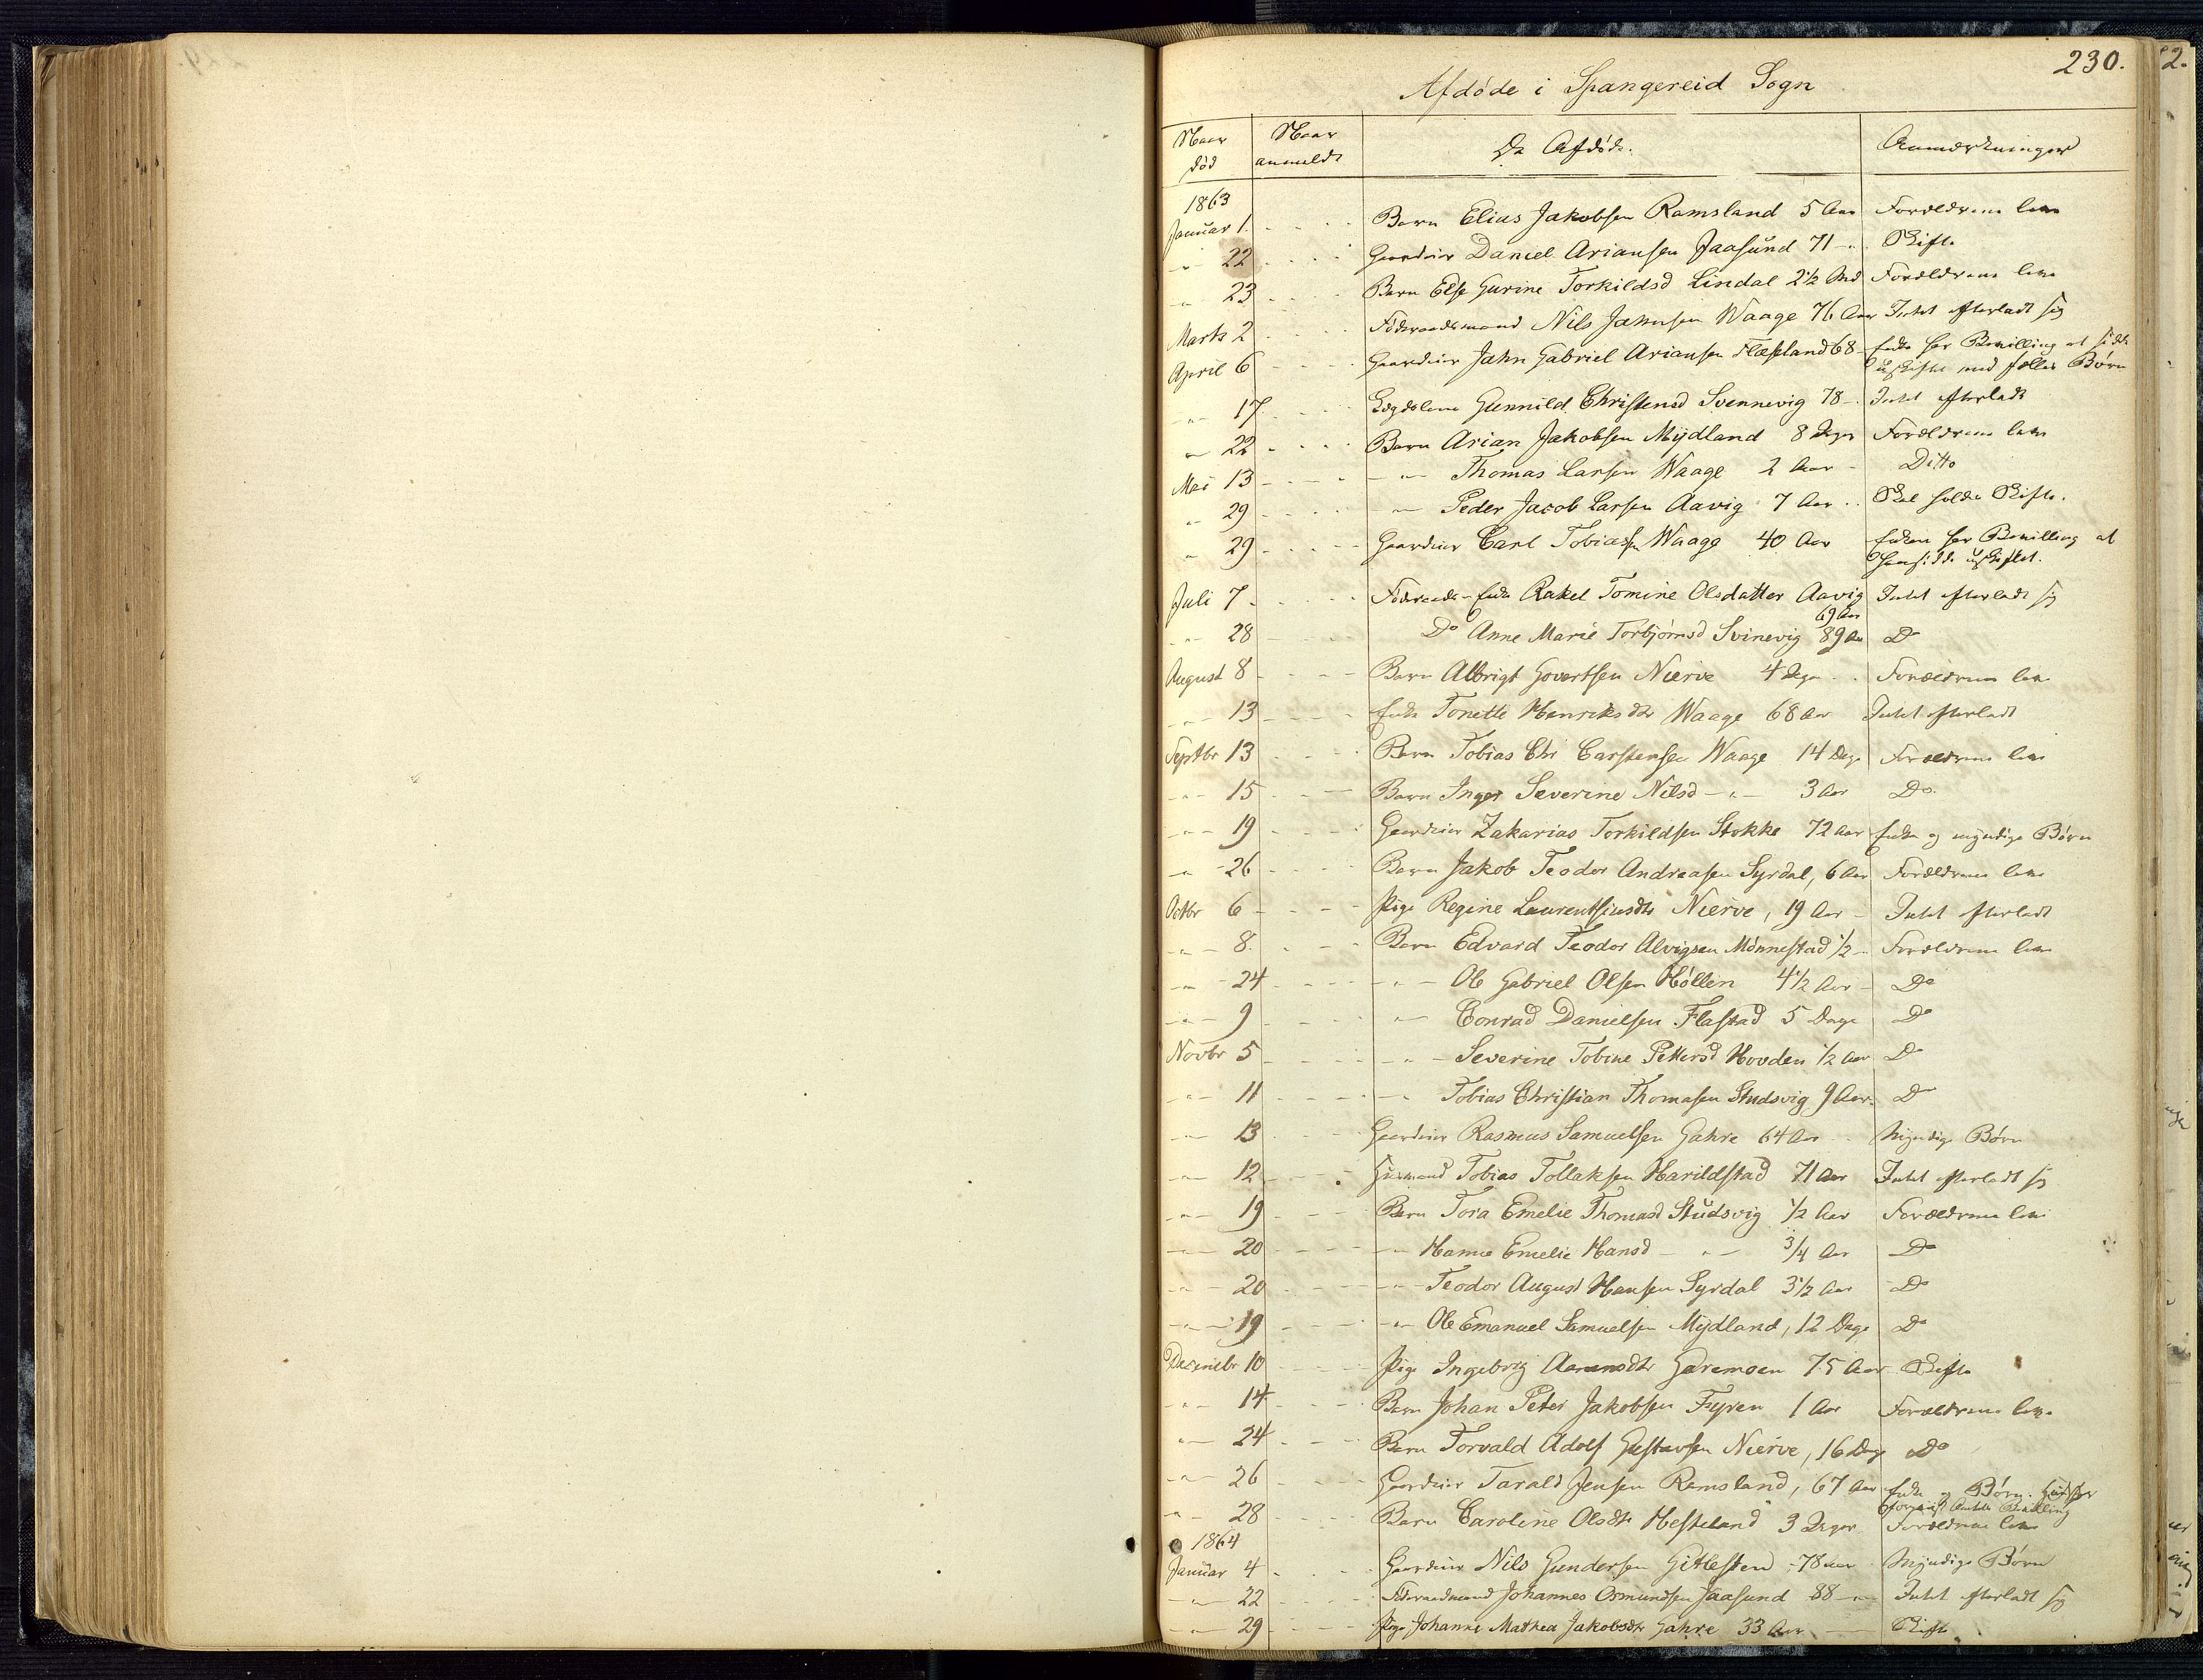 230.
Afdøde i Spangereid Sogn
Naar død
Naar anmeldt
De Afdøde.
Anmærkninger
1863
Januar 1. Barn Elias Jakobsen Ramsland 5 Aar Forældrene leve
-"- 22 Gaardmr Daniel Ariansen Jaasund 71 -"- Skifte
-"- 23 Barn Else Gurine Torkildsd Lindal 2 1/2 And Forældrene leve
Marts 2 Føderaadsmand Nils Jamnsen Waage 76 Aar Intet efterladt sig
April 6 Gaardmr Jahn Gabriel Ariansen Flæsland 68 Enke har Bevilling at sidde
uskiftet med fælles Børn
-"- 17 Lægdslem Gunnild Christensd Svennevig 78 - Intet efterladt
-"- 22 Barn Arian Jakobsen Mydland 8 Dage Forældrene leve
Mai 13 -"- Thomas Larsen Waage 2 Aar - Ditto
-"- 29 -"- Peder Jacob Larsen Aavig 7 Aar Skal holdes Skifte.
-"- 29 Gaardmr Carl Tobiassen Waage 40 Aar Enken har Bevilling at
hensidde uskiftet.
Juli 7. Føderaads-Enke Rakel Tomine Olsdatter Aavig Intet efterladt sig
69 Aar
-"- 28 Do Anne Marie Torbjørnsd Svinevig 89 Aar Do
August 8 Barn Albrigt Govertsen Nierve 4 Dage Forældrene leve
-"- 13 Enke Tonette Henriksdtr Waage 68 Aar Intet efterladt
Septbr 13 Barn Tobias Chr Carstensen Waage 14 Dage Forældrene leve
-"- 15 Barn Inger Severine Nilsd -"- 3 Aar Do.
-"- 19 Gaardmr Zakarias Torkildsen Stokke 72 Aar Enke og myndige Børn
-"- 26 Barn Jakob Teodor Andreasen Syrdal, 6 Aar Forældrene leve
Octbr 6 Pige Regine Laurentsiusdtr Nierve, 19 Aar - Intet efterladt
-"- 8. Barn Edvard Teodor Alvigsen Mønnestad 1/2 - Forældrene leve
-"- 24 -"- Ole Gabriel Olsen Høllen 4 1/2 Aar - Do
-"- 9 -"- Conrad Danielsen Flastad 5 Dage Do
Novbr 5 -"- Severine Tobine Pettersd Hovden 1/2 Aar Do
-"- 11 -"- Tobias Christian Thomasen Studsvig 9 Aar. Do
-"- 13 Gaardmr Rasmus Samuelsen Gahre 64 Aar Myndige Børn
-"- 12 Husmand Tobias Tollaksen Harildstad 71 Aar Intet efterladt sig
-"- 19 Barn Tora Emelie Thomasd Studsvig 1/2 Aar Forældrene leve
-"- 20 -"- Hanne Emelie Hansd -"- 3/4 Aar Do
-"- 20 -"- Teodor August Hansen Syrdal 3 1/2 Aar Do
-"- 19 -"- Ole Emanuel Samuelsen Mydland, 12 Dage Do
Decembr 10 Pige Ingeborg Aanensdtr Garemoen 75 Aar Skifte
-"- 14 Barn Johan Peter Jakobsen Fyren 1 Aar Forældrene leve
-"- 24 Barn Torvald Adolf Gustavsen Nierve, 16 Dage Do
-"- 26 Gaardmr Tarald Jensen Ramsland, 67 Aar Enke og Børn.
Bevilling
-"- 28 Barn Caroline Olsdtr Hesteland 3 Dager Forældrene leve
1864
Januar 4 Gaardmr Nils Gundersen Gitlesten 78 Aar Myndige Børn
-"- 22 Føderaadmand Johannes Osmundsen Jaasund 88 -"- Intet efterladt sig
-"- 29 Pige Johanne Mathea Jakobsdtr Gahre 33 Aar Skifte